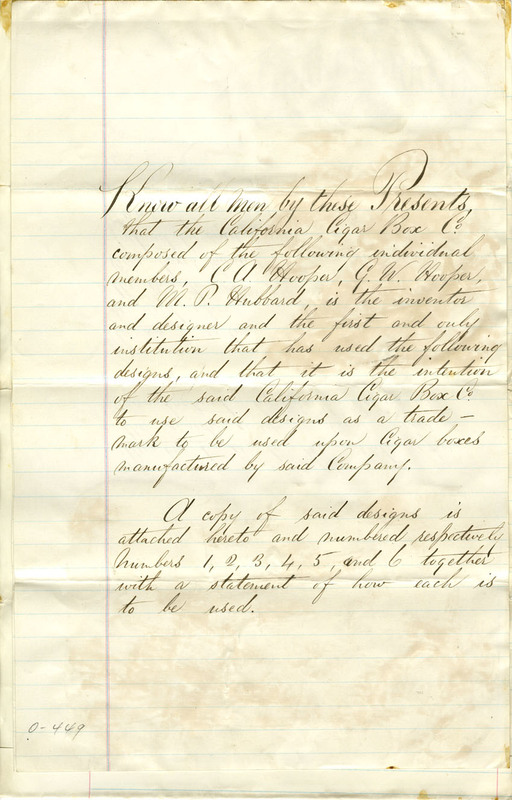 Know all men by these Presents,
that the California Cigar Box Co.
composed of the following individual
members, C A Hooper, G. W. Hooper,
and M. P. Hubbard, is the inventor
and designer and the first and only
institution that has used the following
designs, and that it is the intention
of the said California Cigar Box Co.
to use said designs as a trade-
mark to be used upon Cigar boxes
manufactured by said Company.
A copy of said designs is
attached hereto and numbered respectively
Numbers 1, 2, 3, 4, 5, and 6 together
with a statement of how each is
to be used.
0-449